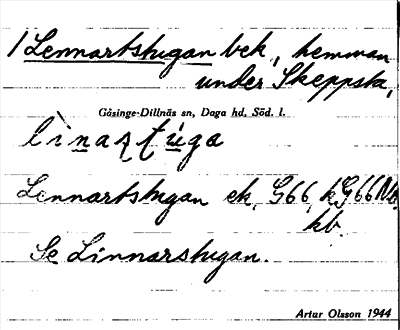 1 Lennartstugan bek., hemman
under Skeppsta,
Gåsinge-Dillnäs sn, Daga hd, Söd. l.
Lennartstugan ek, G66, kG66NÖ,
kb.
Se Linnarstugan.
Artur Olsson 1944